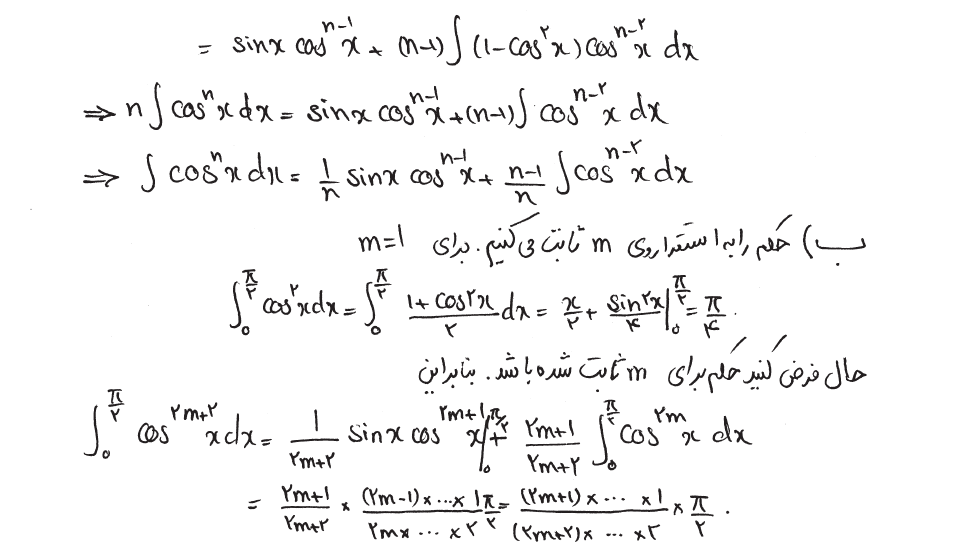 = sinx cos^{n-1}x + (n-1)∫(1-cos^۲x) cos^{n-۲}x dx
⇒ n∫cos^n x dx = sinx cos^{n-1}x + (n-1)∫cos^{n-۲}x dx
⇒ ∫cos^n x dx = \frac{1}{n} sinx cos^{n-1}x + \frac{n-1}{n}∫cos^{n-۲}x dx
ب) حکم را به استقرا روی m ثابت می‌کنیم. برای m=1
∫_۰^{\frac{π}{۲}} cos^۲x dx = ∫_۰^{\frac{π}{۲}} \frac{1+cos۲x}{۲} dx = \frac{x}{۲} + \frac{sin۲x}{۴}|_۰^{\frac{π}{۲}} = \frac{π}{۴}.
حال فرض کنید حکم برای m ثابت شده باشد. بنابراین
∫_۰^{\frac{π}{۲}} cos^{۲m+۲}x dx = \frac{1}{۲m+۲} sinx cos^{۲m+1}x|_۰^{\frac{π}{۲}} + \frac{۲m+1}{۲m+۲}∫_۰^{\frac{π}{۲}} cos^{۲m}x dx
= \frac{۲m+1}{۲m+۲} × \frac{(۲m-1)×...×1}{۲m×...×۲} \frac{π}{۲} = \frac{(۲m+1)×...×1}{(۲m+۲)×...×۲} × \frac{π}{۲}.